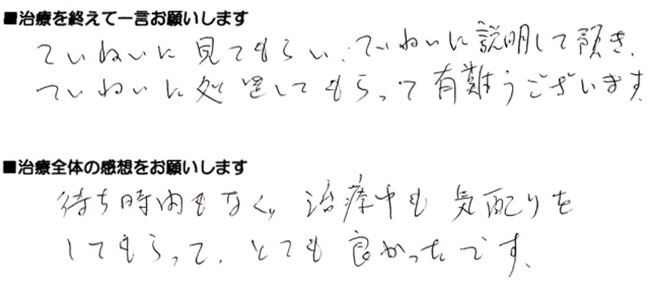 ■治療を終えて一言お願いします
ていねいに見てもらい、ていねいに説明して頂き、
ていねいに処置してもらって有難うございます。
■治療全体の感想をお願いします
待ち時間もなく、治療中も気配りを
してもらって、とても良かったです。